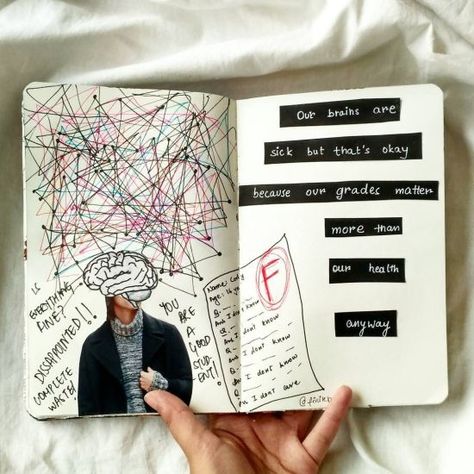 IS
EVERYTHING
FINE?
DISAPPOINTED!!
COMPLETE
WASTE!
YOU
ARE
A
GOOD
STUD-
ENT!
Name:
Age: 16
F
Q-
Ans I don't know
Q-
Ans I don't know
Q-
Ans I dont know
Q-
Ans I dont know
Q-
Ans I dont care
Our brains are
sick but that's okay
because our grades matter
more than
our health
anyway